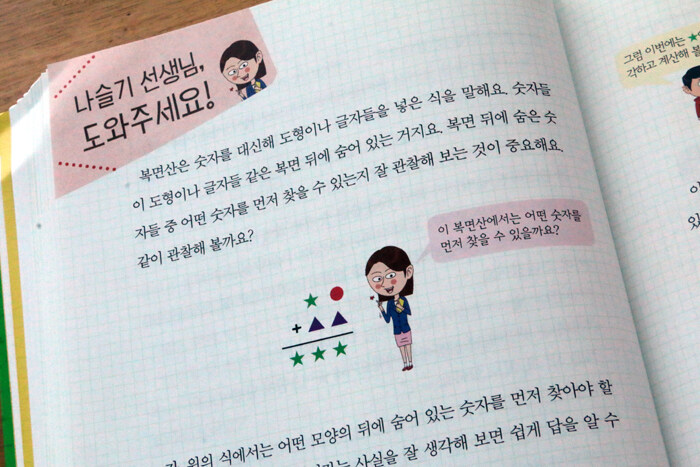 나슬기 선생님,
도와주세요!
복면산은 숫자를 대신해 도형이나 글자들을 넣은 식을 말해요. 숫자들
이 도형이나 글자들 같은 복면 뒤에 숨어 있는 거지요. 복면 뒤에 숨은 숫
자들 중 어떤 숫자를 먼저 찾을 수 있는지 잘 관찰해 보는 것이 중요해요.
같이 관찰해 볼까요?
이 복면산에서는 어떤 숫자를
먼저 찾을 수 있을까요?
★ ●
+ ▲ ▲
★ ★ ★
위의 식에서는 어떤 모양의 뒤에 숨어 있는 숫자를 먼저 찾아야 할
사실을 잘 생각해 보면 쉽게 답을 알 수
그럼 이번에는 ★
각하고 계산해 볼